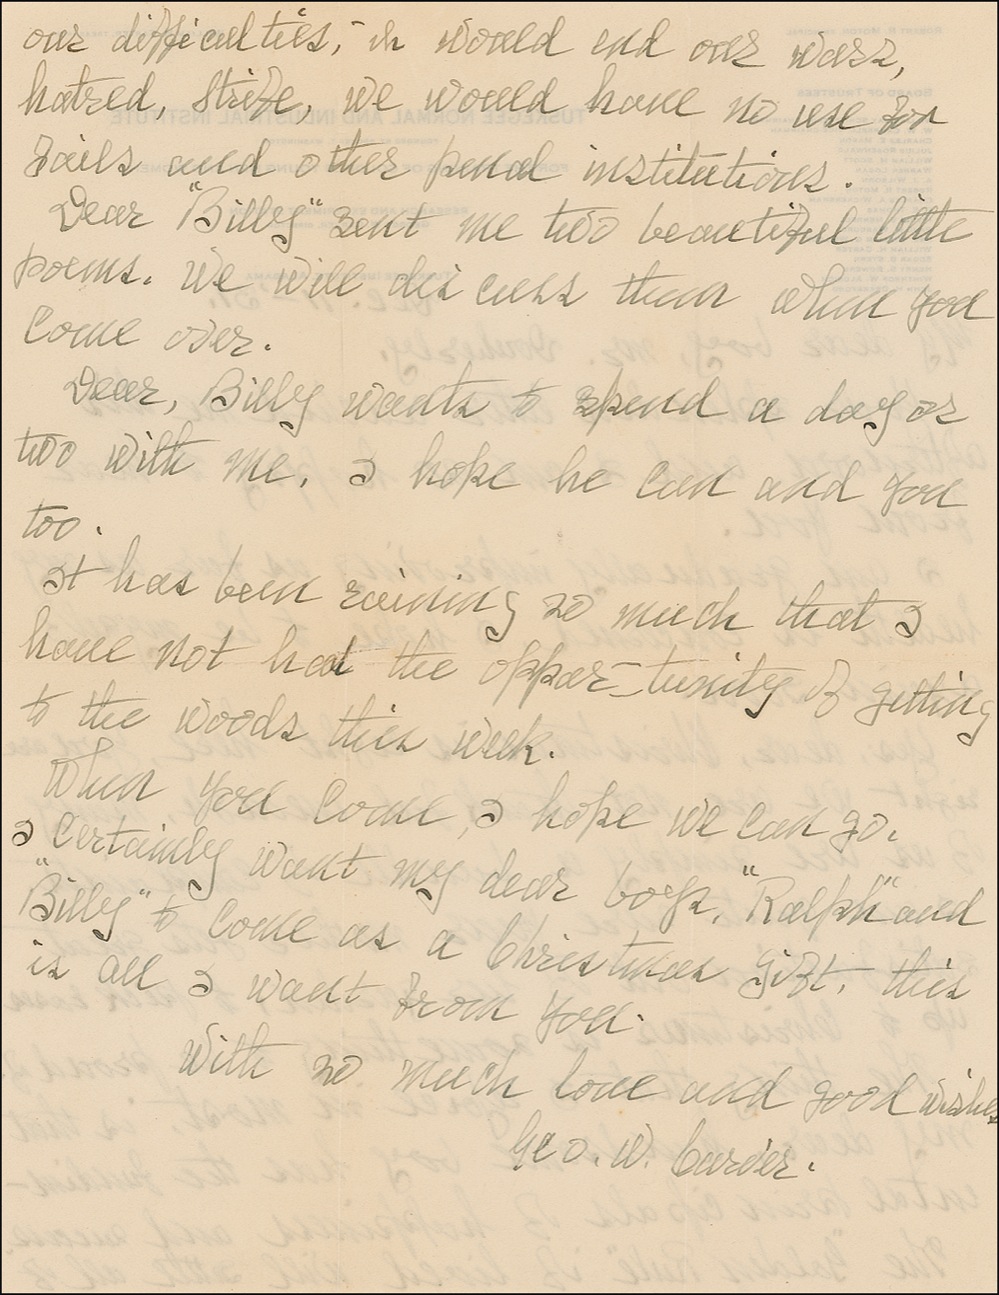 our difficulties, it would end our wars,
hatred, strife, we would have no use for
jails and other penal institutions.
Dear "Billy" sent me two beautiful little
poems. We will dis cuss them when you
come over.
Dear, Billy wants to spend a day or
two with me, I hope he can and you
too.
It has been raining so much that I
have not had the oppor-tunity of getting
to the woods this week.
When you come, I hope we can go.
I certainly want my dear boys, "Ralph" and
"Billy" to come as a Christmas gift, this
is all I want from you.
With so much love and good wishes
Geo. W. Carver.